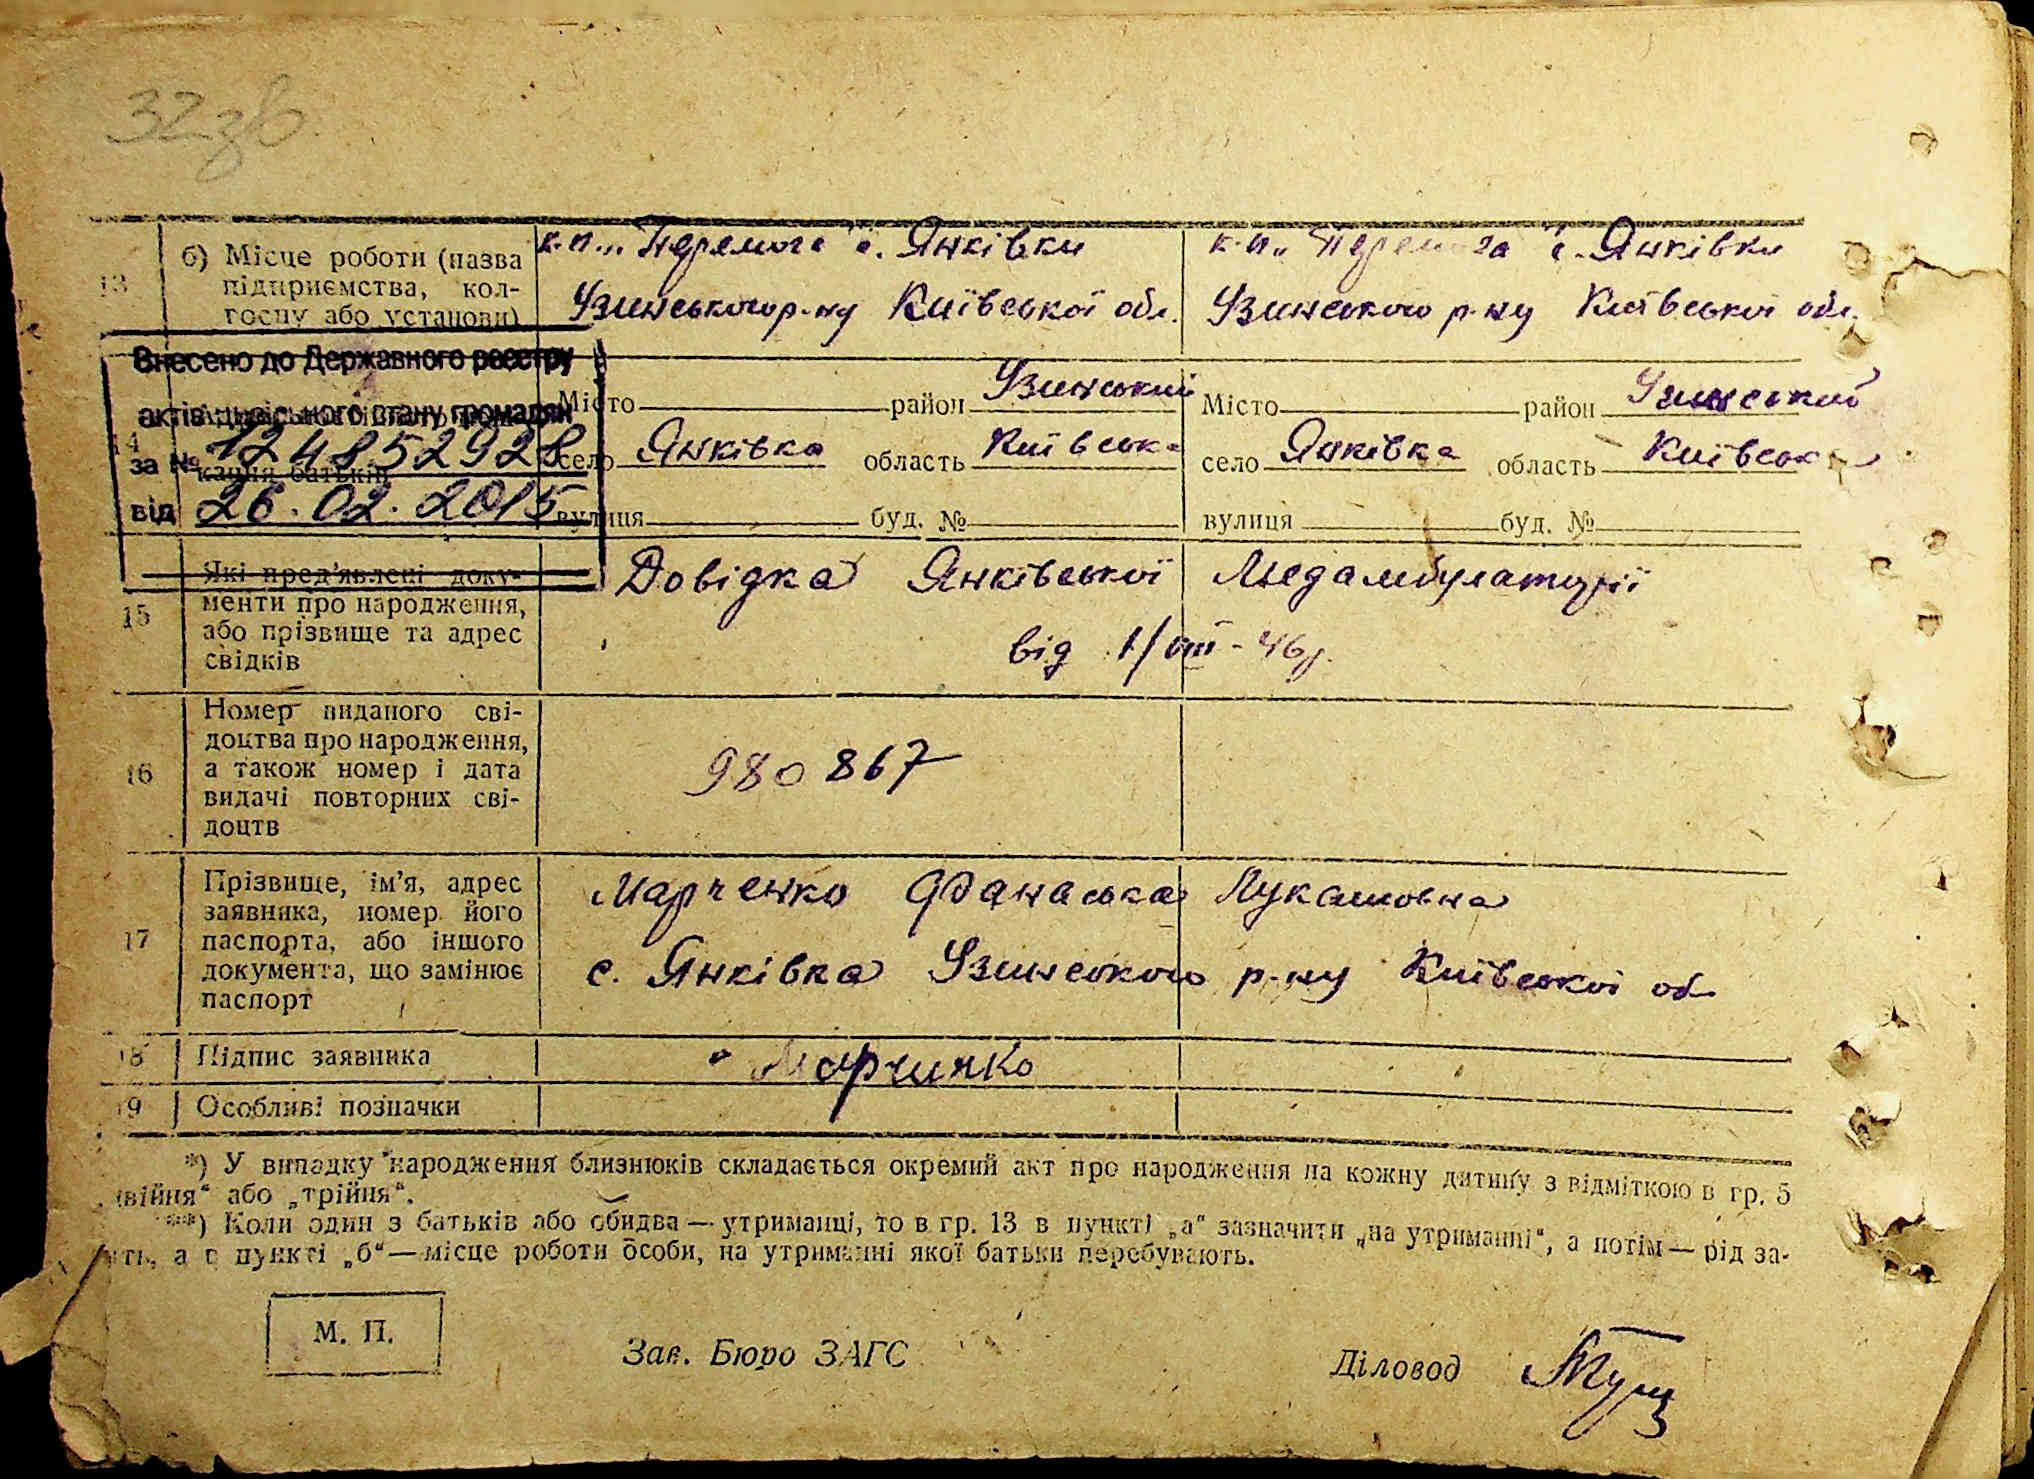 32зв
13 б) Місце роботи (назва підприємства, колгоспу або установи)
к-п „Перемога" с. Янківки
Узинського р-ну Київської обл.
к-п „Перемога" с. Янківки
Узинського р-ну Київської обл.
Внесено до Державного реєстру
актів цивільного стану громадян
за № 124852928
від 26.02.2015
14
кання батьків
Місто район Узинський
село Янківка область Київська
вулиця буд. №
Місто район Узинський
село Янківка область Київська
вулиця буд. №
15 Які пред'явлені доку-
менти про народження,
або прізвище та адрес
свідків
Довідка Янківської Медамбулаторії
від 1/VIII-46р.
16 Номер виданого сві-
доцтва про народження,
а також номер і дата
видачі повторних сві-
доцтв
980867
17 Прізвище, ім'я, адрес
заявника, номер його
паспорта, або іншого
документа, що замінює
паспорт
Марченко Оданаська Лукашовна
с. Янківка Узинського р-ну Київської об.
18 Підпис заявника
Марчинко
19 Особливі позначки
*) У випадку народження близнюків складається окремий акт про народження на кожну дитину з відміткою в гр. 5
двійня" або „трійня".
**) Коли один з батьків або обидва — утриманці, то в гр. 13 в пункті „а" зазначити „на утриманні", а потім — рід за-
нять, а в пункті „б" — місце роботи особи, на утриманні якої батьки перебувають.
М. П.
Зав. Бюро ЗАГС
Діловод